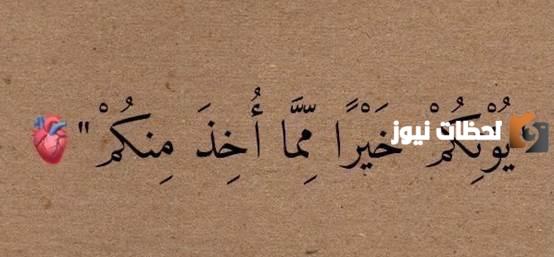 يُؤْتِكُمْ خَيْرًا مِّمَّا أُخِذَ مِنكُمْ"
لحظات نيوز